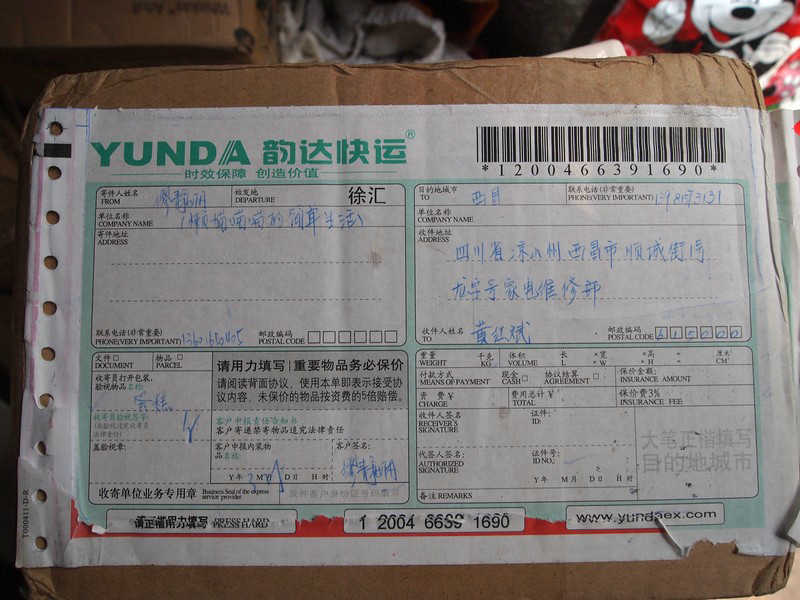 YUNDA 韵达快运®
时效保障 创造价值
*1200466391690*
寄件人姓名 FROM
始发地 DEPARTURE 徐汇
单位名称 COMPANY NAME
寄件地址 ADDRESS
联系电话(非常重要) PHONE(VERY IMPORTANT)
邮政编码 POSTAL CODE
目的地城市 TO 西昌
联系电话(非常重要) PHONE(VERY IMPORTANT)
单位名称 COMPANY NAME
收件地址 ADDRESS
四川省凉山州西昌市顺城街
家电维修部
收件人姓名 TO 黄红斌
邮政编码 POSTAL CODE 615000
文件□ DOCUMENT
物品□ PARCEL
请用力填写 重要物品务必保价
请阅读背面协议，使用本单即表示接受协
议内容．未保价的物品按资费的5倍赔偿。
收寄员打开包装，
验视物品名称:
蛋糕
收寄员验视签字:
盖验视章:
客户申报责任告知书
客户寄递禁寄物品追究法律责任
客户申报内装物
品名称:
客户签名:
Y年 M月 D日 H时
收寄单位业务专用章 Business Seal of the express service provider
重量 WEIGHT 千克 KG
体积 VOLUME 长 L ×宽 W ×高 H = 厘米 CM³
付款方式 MEANS OF PAYMENT
现金 CASH□
协议结算 AGREEMENT □
保价金额: INSURANCE AMOUNT
资费¥ CHARGE
费用总计¥ TOTAL
保价费3% INSURANCE FEE
收件人签名 RECEIVER'S SIGNATURE
证件: ID:
代签人签名 AUTHORIZED SIGNATURE
证件号: ID NO.:
Y年 M月 D日 H时
大笔正楷填写
目的地城市
备注 REMARKS
请正楷用力填写 PRESS HARD
1 2004 6639 1690
www.yundaex.com
T000411-D-R